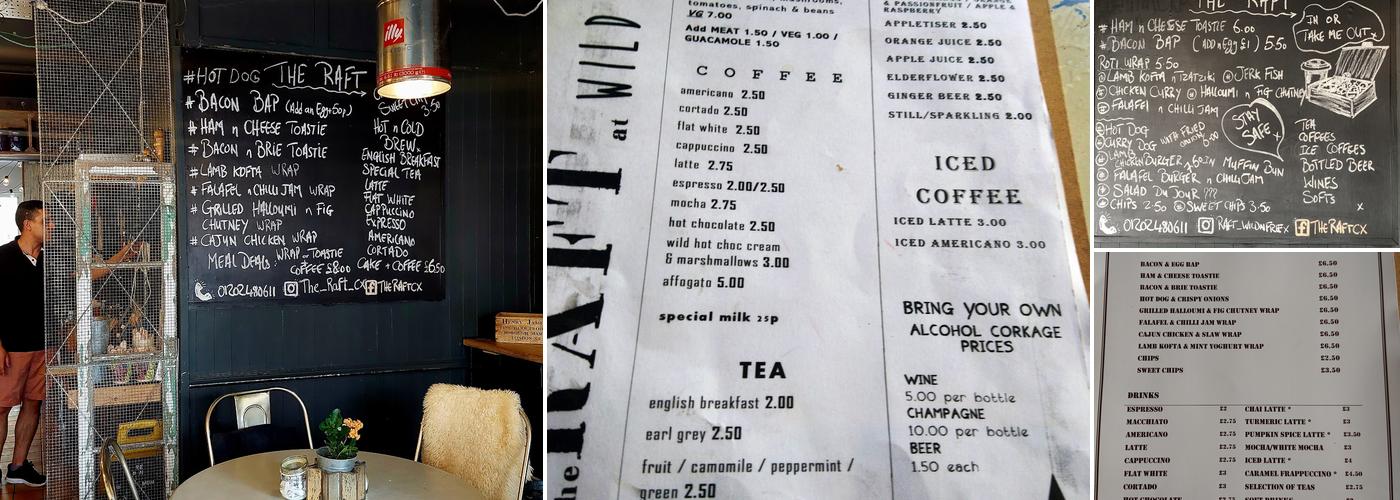 illy
#HOT DOG THE RAFT
# BACON BAP (Add an Egg+50p)
# HAM n CHEESE TOASTIE
# BACON n BRIE TOASTIE
#LAMB KOFTA WRAP
# FALAFEL n CHILLI JAM WRAP
# GRILLED HALLOUMI n FIG
CHUTNEY WRAP
# CAJUN CHICKEN WRAP
MEAL DEALS: WRAP TOASTIE
COFFEE £8.00 CAKE + COFFEE £6.50
3.50
HOT n COLD
BREW
ENGLISH BREAKFAST
SPECIAL TEA
LATTE
FLAT WHITE
CAPPUCCINO
EXPRESSO
AMERICANO
CORTADO
01202480611 The_Raft_CX THERAFTCX
the RAFT at WILD
tomatoes, spinach & beans
VG 7.00
Add MEAT 1.50 / VEG 1.00 /
GUACAMOLE 1.50
COFFEE
americano 2.50
cortado 2.50
flat white 2.50
cappuccino 2.50
latte 2.75
espresso 2.00/2.50
mocha 2.75
hot chocolate 2.50
wild hot choc cream
& marshmallows 3.00
affogato 5.00
special milk 25p
TEA
english breakfast 2.00
earl grey 2.50
fruit / camomile / peppermint /
green 2.50
& PASSIONFRUIT / APPLE &
RASPBERRY
APPLETISER 2.50
ORANGE JUICE 2.50
APPLE JUICE 2.50
ELDERFLOWER 2.50
GINGER BEER 2.50
STILL/SPARKLING 2.00
ICED
COFFEE
ICED LATTE 3.00
ICED AMERICANO 3.00
BRING YOUR OWN
ALCOHOL CORKAGE
PRICES
WINE
5.00 per bottle
CHAMPAGNE
10.00 per bottle
BEER
1.50 each
THE RAFT
# HAM n CHEESE TOASTIE 6.00
# BACON BAP (ADD n Egg £1) 5.50
ROTI WRAP 5.50
LAMB KOFTA n TZATZIKI JERK FISH
CHICKEN CURRY HALLOUMI n FIG CHUTNEY
FALAFEL n CHILLI JAM
HOT DOG
CURRY DOG WITH FRIED
LAMB
CHICKEN BURGER IN MUFFIN BUN
FALAFEL BURGER n CHILLI JAM
SALAD DU JOUR ???
CHIPS 2.50 SWEET CHIPS 3.50
IN OR
TAKE ME OUT x
STAY
SAFE x
TEA
COFFEES
ICE COFFEES
BOTTLED BEER
WINES
SOFTS
x
01202480611 RAFT_WILDNFREEX THERAFTCX
BACON & EGG BAP £6.50
HAM & CHEESE TOASTIE £6.50
BACON & BRIE TOASTIE £6.50
HOT DOG & CRISPY ONIONS £6.50
GRILLED HALLOUMI & FIG CHUTNEY WRAP £6.50
FALAFEL & CHILLI JAM WRAP £6.50
CAJUN CHICKEN & SLAW WRAP £6.50
LAMB KOFTA & MINT YOGHURT WRAP £6.50
CHIPS £2.50
SWEET CHIPS £3.50
DRINKS
ESPRESSO £2 CHAI LATTE * £3
MACCHIATO £2.75 TURMERIC LATTE * £3
AMERICANO £2.75 PUMPKIN SPICE LATTE * £3.50
LATTE £2.75 MOCHA/WHITE MOCHA £3
CAPPUCCINO £2.75 ICED LATTE * £4
FLAT WHITE £3 CARAMEL FRAPPUCCINO * £4.50
CORTADO £3 SELECTION OF TEAS £2.75